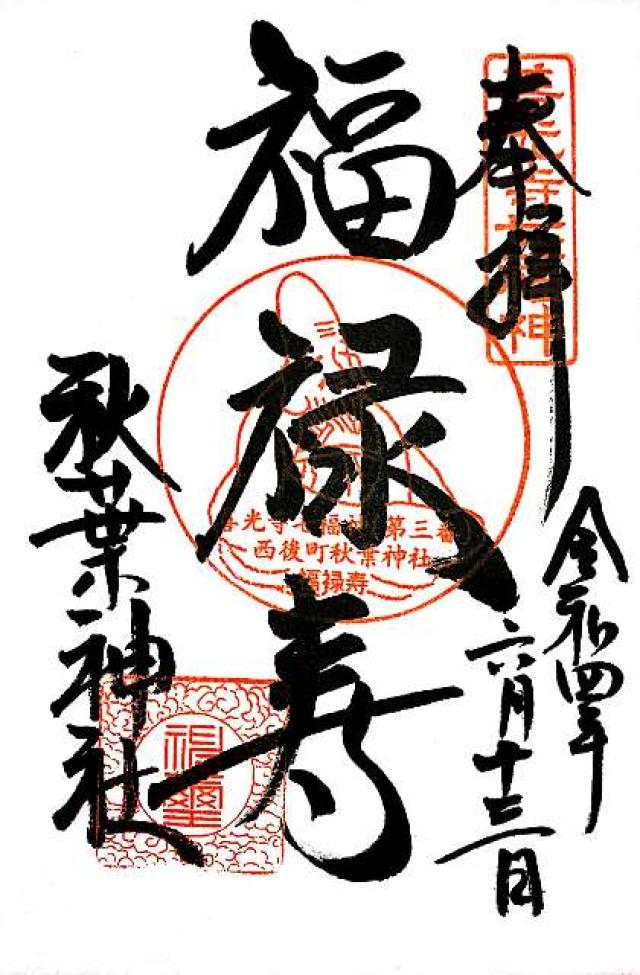 奉拝
善光寺七福神
福禄寿
善光寺七福神 第三番
西後町秋葉神社
福禄寿
令和四年
六月十三日
秋葉神社